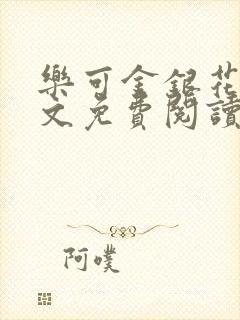 樂可金銀花
文免費閱讀
阿噗